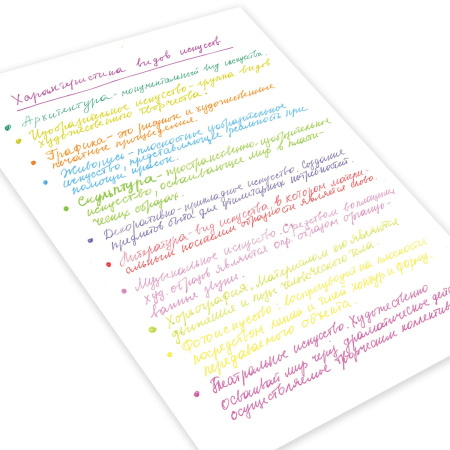 Характеристика видов искусств
Архитектура - монументальный вид искусства.
Изобразительное искусство - группа видов
художественного творчества.
Графика - это рисунок и художественные
печатные произведения.
Живопись - плоскостное изобразительное
искусство, представляющее реальность при
помощи красок.
Скульптура - пространственно-изобразительное
искусство, осваивающее мир в пласти-
ческих образах.
Декоративно-прикладное искусство. Создание
предметов быта для утилитарных потребностей.
Литература - вид искусства, в котором матери-
альным носителем образности является слово.
Музыкальное искусство. Средством воплощения
худ. образов являются опр. образом организо-
ванные звуки.
Хореография. Материалом его являются
движения и позы человеческого тела
Фотоискусство. Воспроизводит на плоскости
посредством линий и теней контур и форму
передаваемого объекта.
Театральное искусство. Художественно
осваивает мир через драматическое дей
осуществляемое творческим коллектив